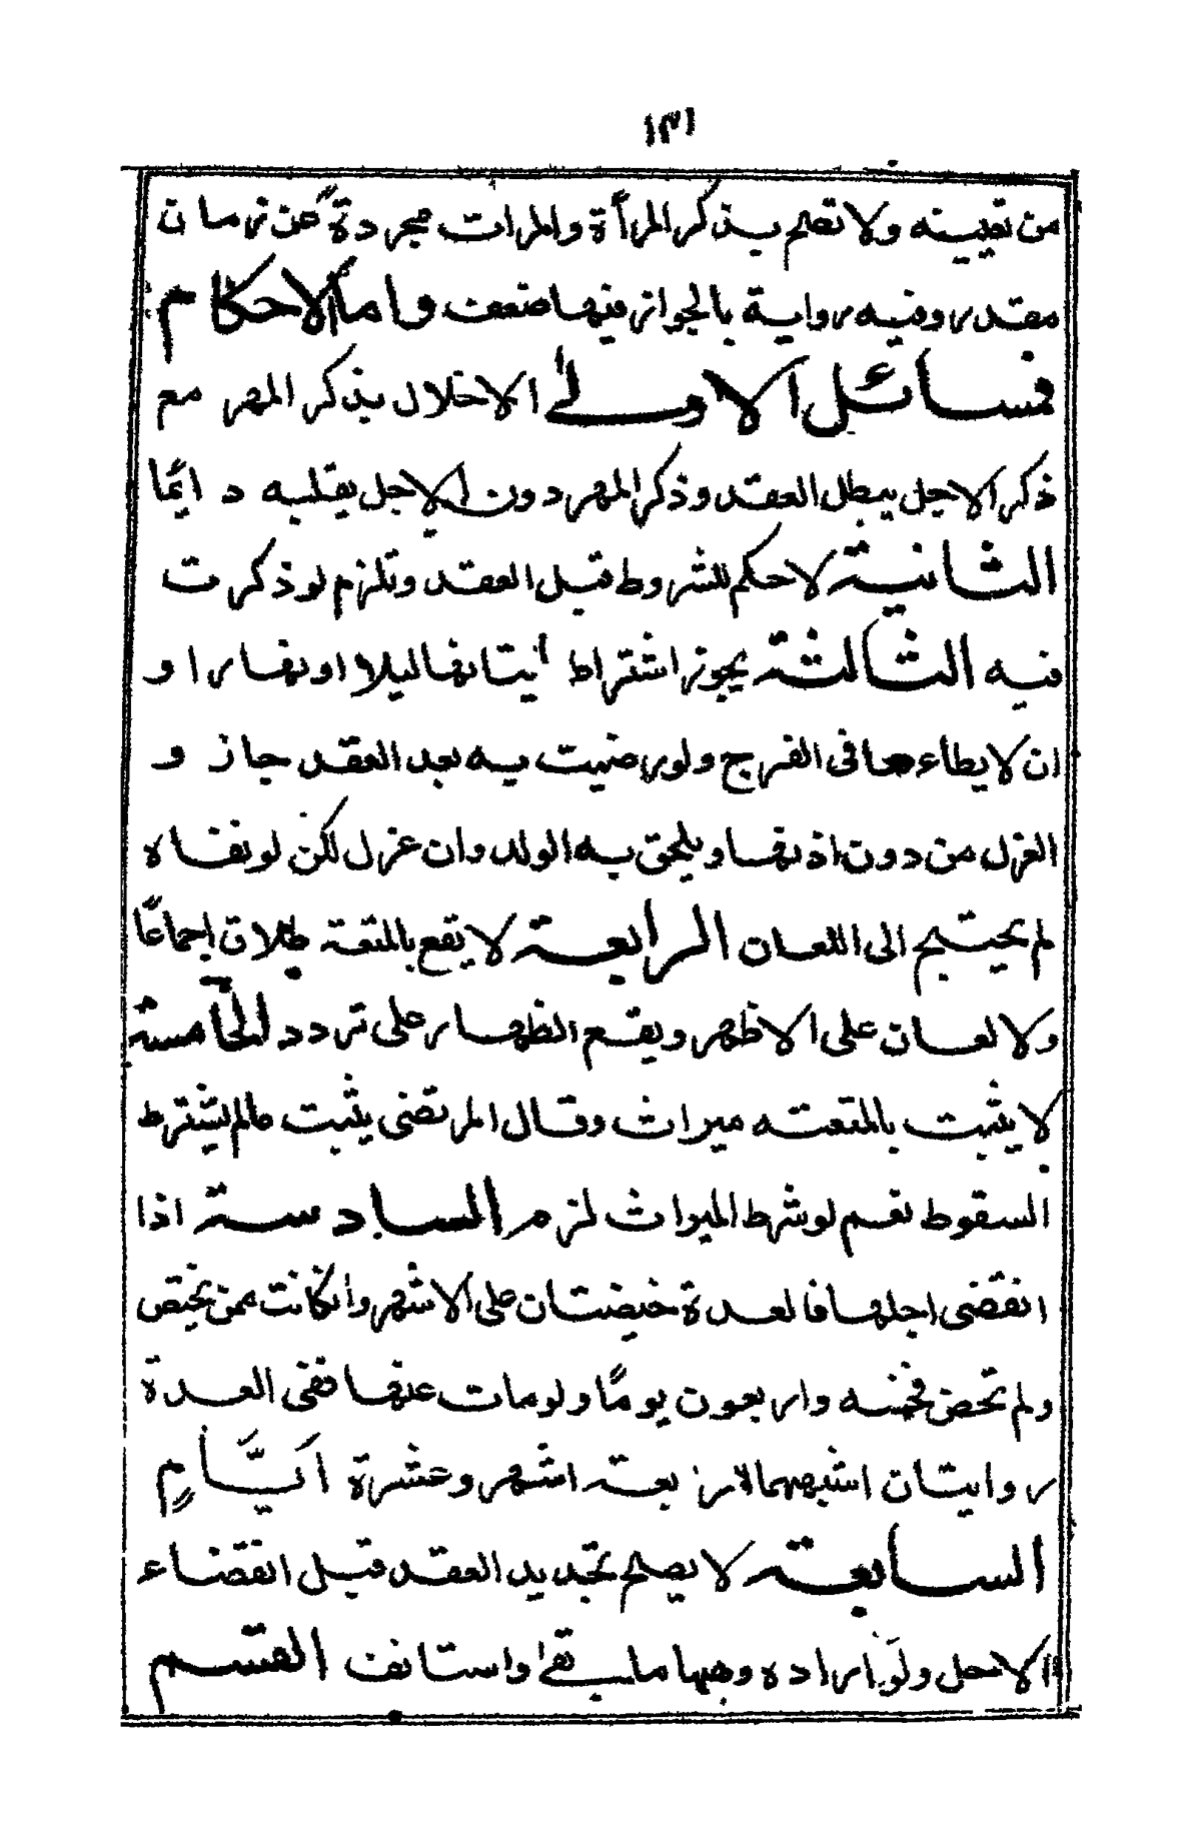 ١٣١
من تعيينه ولا تصلح بذكر المرأة والمرات مجردة عن زمان
مقدر وفيه رواية بالجواز فيها ضعف واما الاحكام
فمسائل الاولى الاخلال بذكر المهر مع
ذكر الاجل يبطل العقد وذكر المهر دون الاجل يقلبه دايمًا
الثانية لا حكم للشروط قبل العقد وتلزم لو ذكرت
فيه الثالثة يجوز اشتراط أتيانها ليلا او نهارا و
ان لا يطاءها فى الفرج ولو رضيت به بعد العقد جاز و
العزل من دون اذنها ويلحق به الولد وان عزل لكن لو نفاه
لم يحتج الى اللعان الرابعة لا يقع بالمتعة طلاق اجماعًا
ولا لعان على الاظهر ويقع الظهار على تردد الخامسة
لا يثبت بالمتعته ميراث وقال المرتضى يثبت مالم يشترط
السقوط نعم لو شرط الميراث لزم السادسة اذا
انقضى اجلها فالعدة حيضتان على الاشهر وانكانت ممن تحيض
ولم تحض فخمسه واربعون يومًا ولو مات عنها ففى العدة
روايتان اشبههما اربعته اشهر وعشرة اَيَّامٍ
السابعة لا يصلح تجديد العقد قبل انقضاء
الاجل ولو اراده وهبها ما بقى واستانف القسم